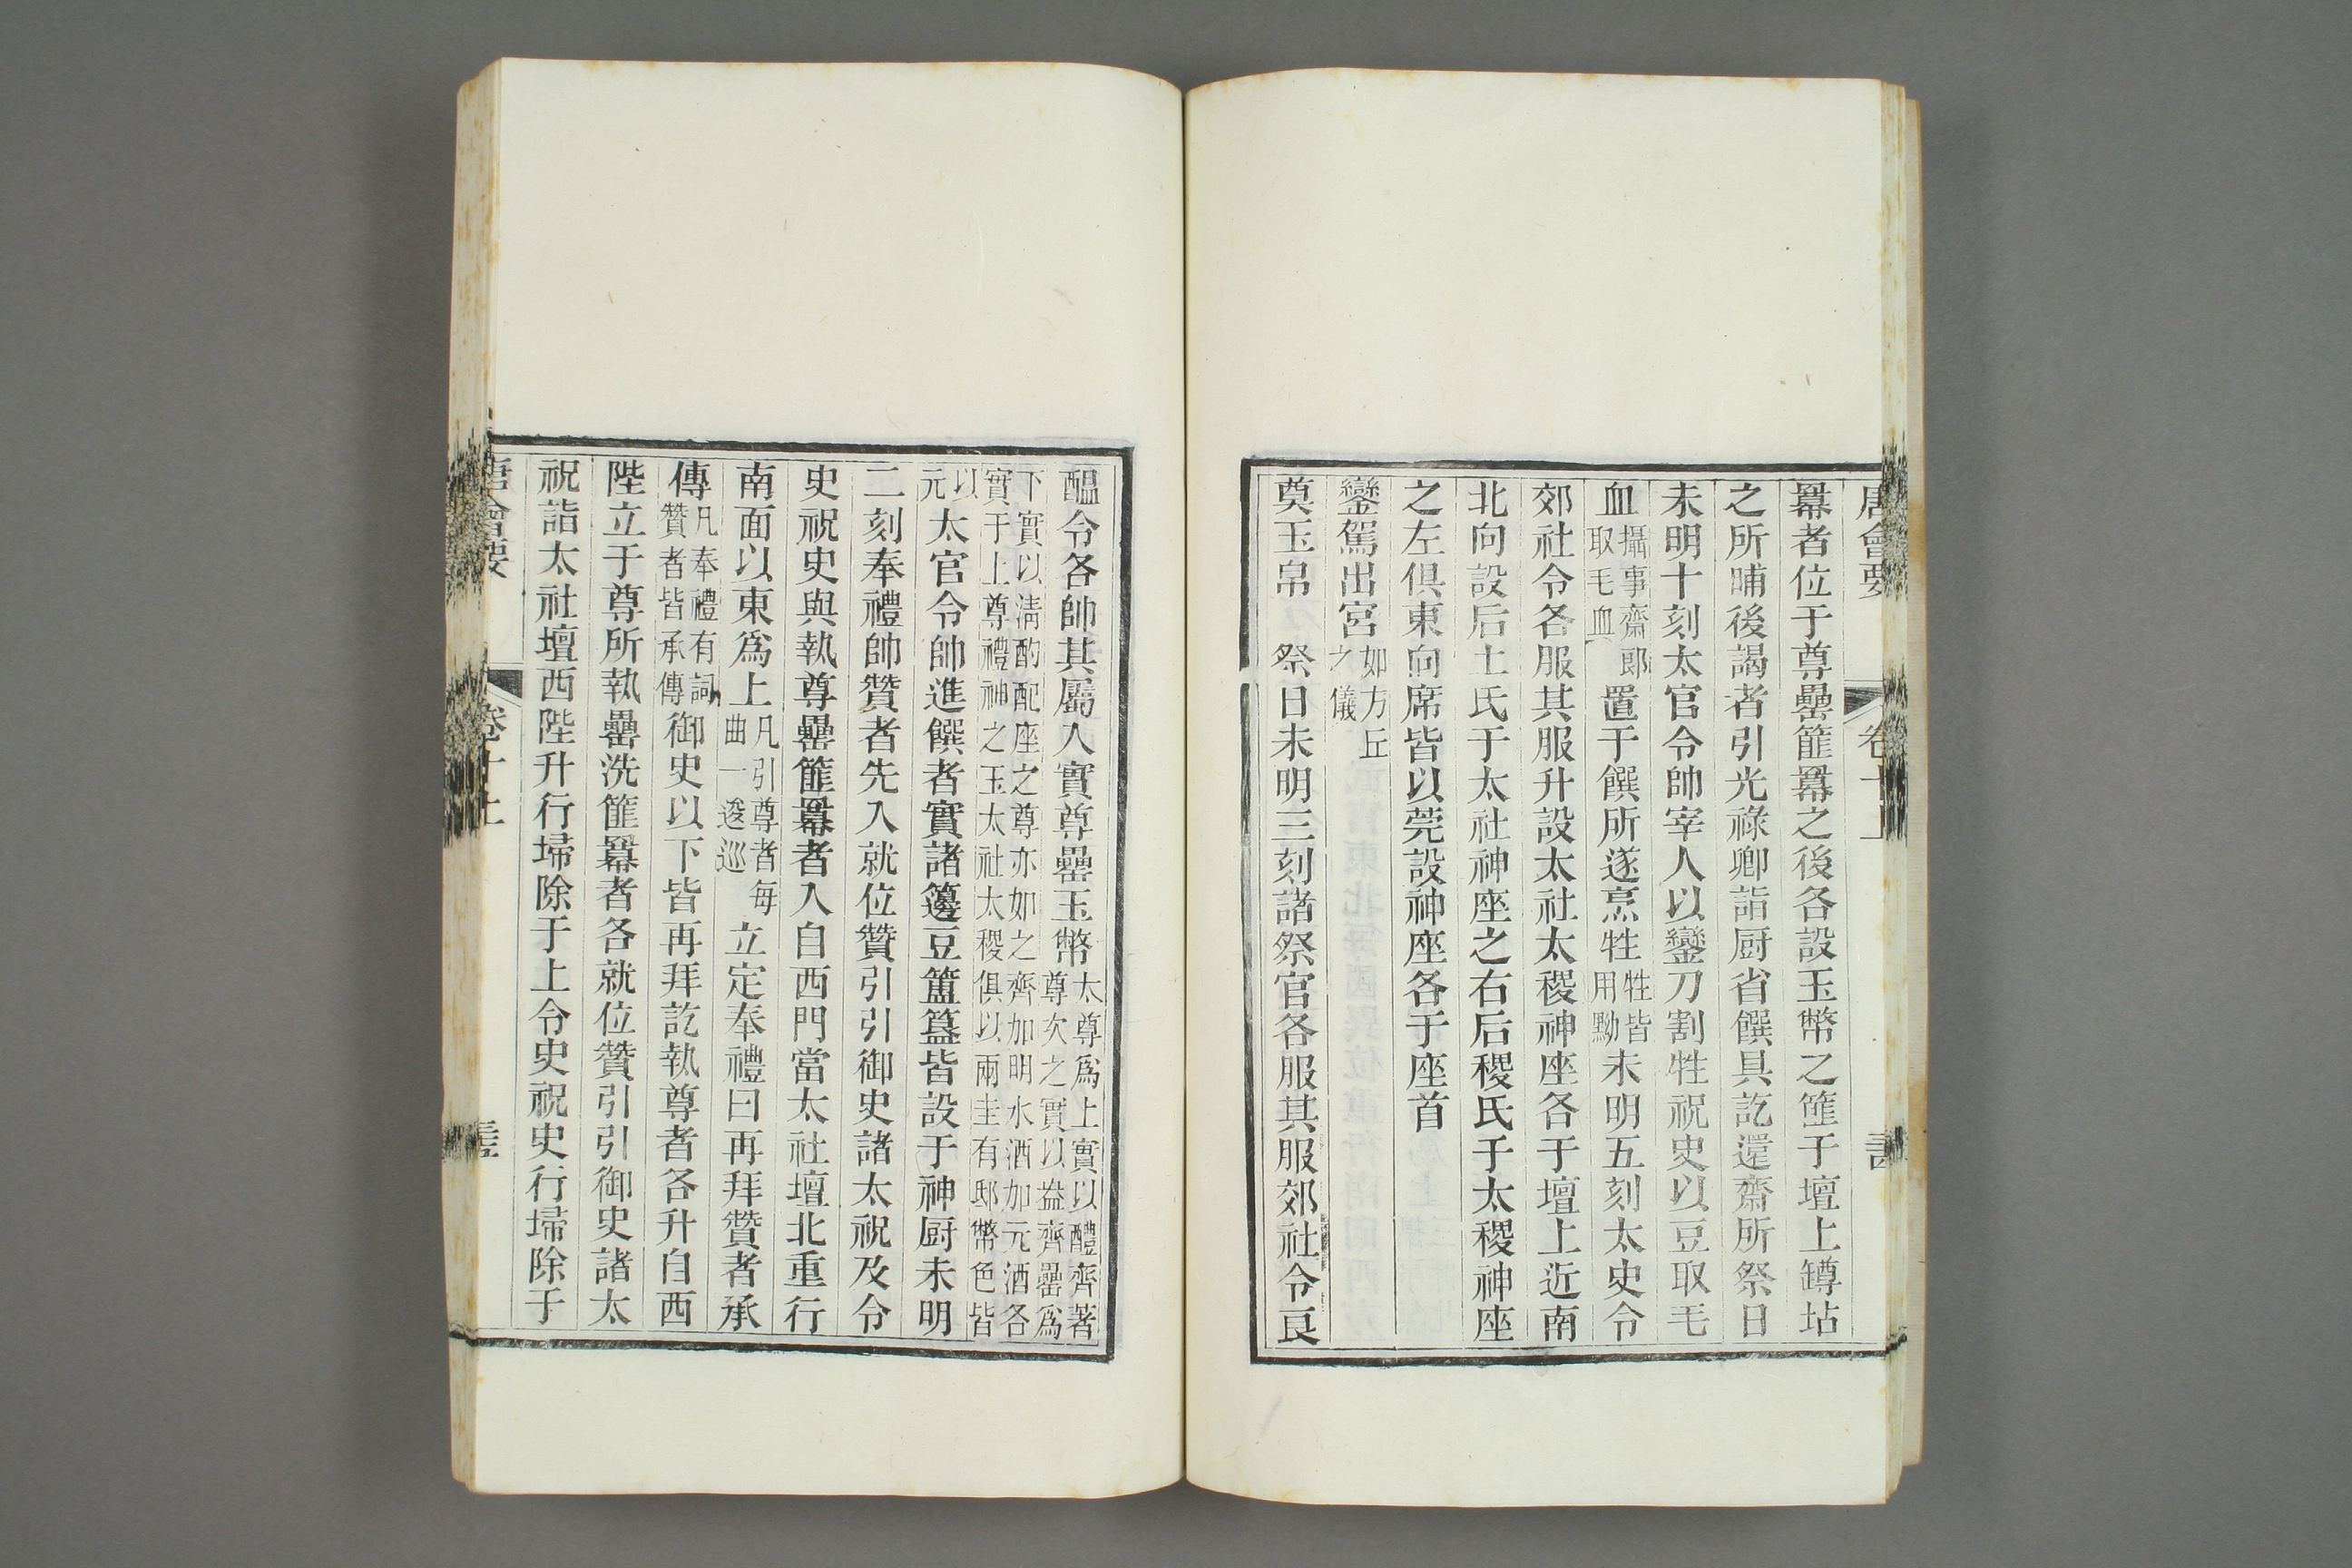 唐會要 卷十上
羃者位于尊罍篚羃之後各設玉幣之篚于壇上罇坫
之所晡後謁者引光祿卿詣厨省饌具訖還齋所祭日
未明十刻太官令帥宰人以鑾刀割牲祝史以豆取毛
血攝事齋郎取毛血置于饌所遂烹牲牲皆用黝未明五刻太史令
郊社令各服其服升設太社太稷神座各于壇上近南
北向設后土氏于太社神座之右后稷氏于太稷神座
之左俱東向席皆以莞設神座各于座首
鑾駕出宮如方丘之儀
奠玉帛 祭日未明三刻諸祭官各服其服郊社令良
醞令各帥其屬入實尊罍玉幣太尊爲上實以醴齊著尊次之實以盎齊罍爲
下實以淸酌配座之尊亦如之齊加明水酒加元酒各實于上尊禮神之玉太社太稷俱以兩圭有邸幣色皆
以元太官令帥進饌者實諸籩豆簠簋皆設于神厨未明
二刻奉禮帥贊者先入就位贊引引御史諸太祝及令
史祝史與執尊罍篚羃者入自西門當太社壇北重行
南面以東爲上凡引尊者每曲一逡巡立定奉禮曰再拜贊者承
傳凡奉禮有詞贊者皆承傳御史以下皆再拜訖執尊者各升自西
陛立于尊所執罍洗篚羃者各就位贊引引御史諸太
祝詣太社壇西陛升行埽除于上令史祝史行埽除于
唐會要 卷十上